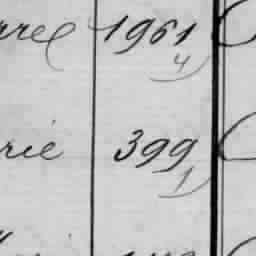 rre 1961
4
rie 399
1